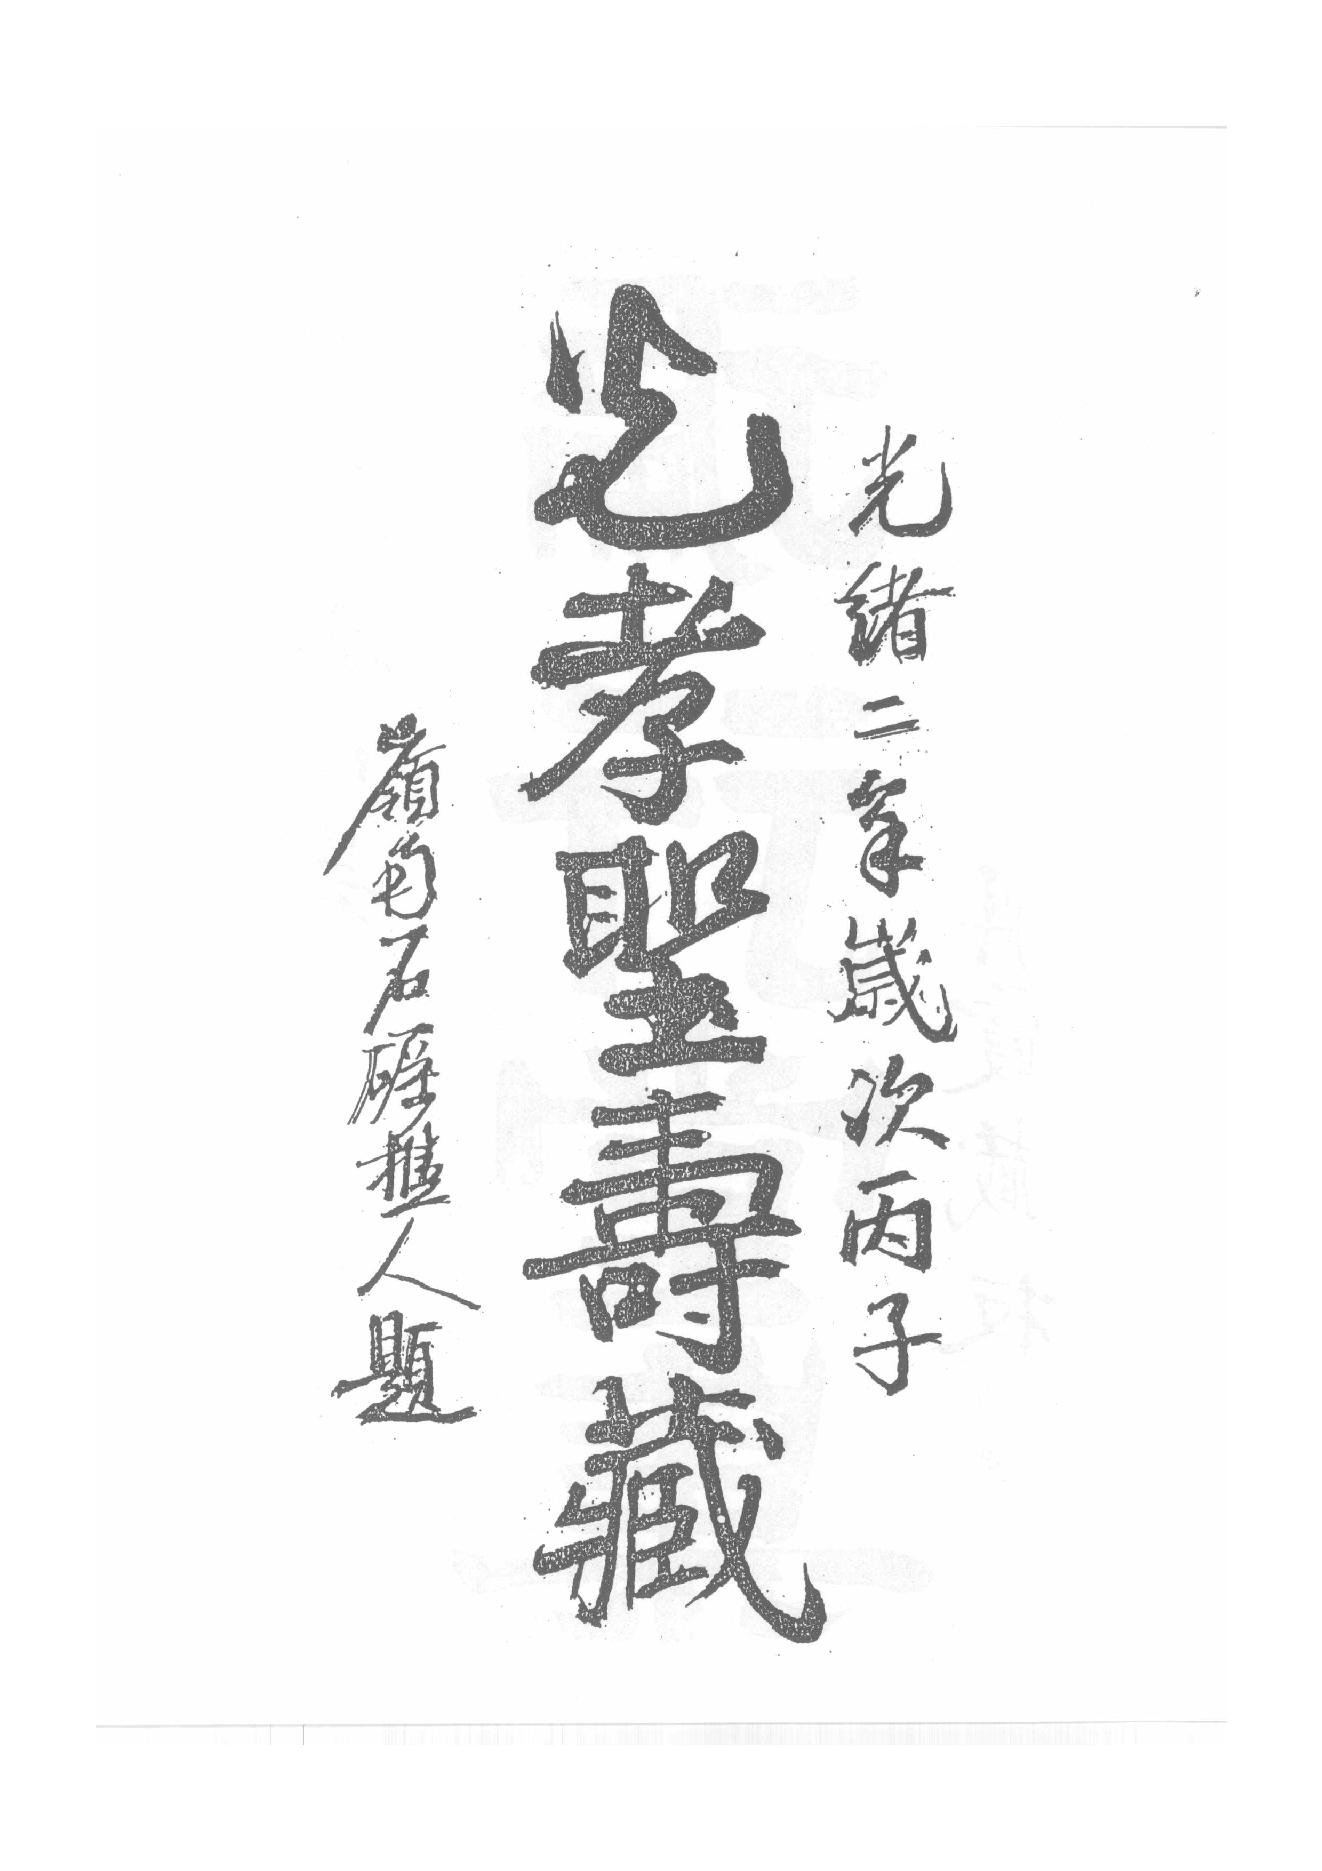 光緒二年歲次丙子
光孝聖壽藏
嶺南石樵人題